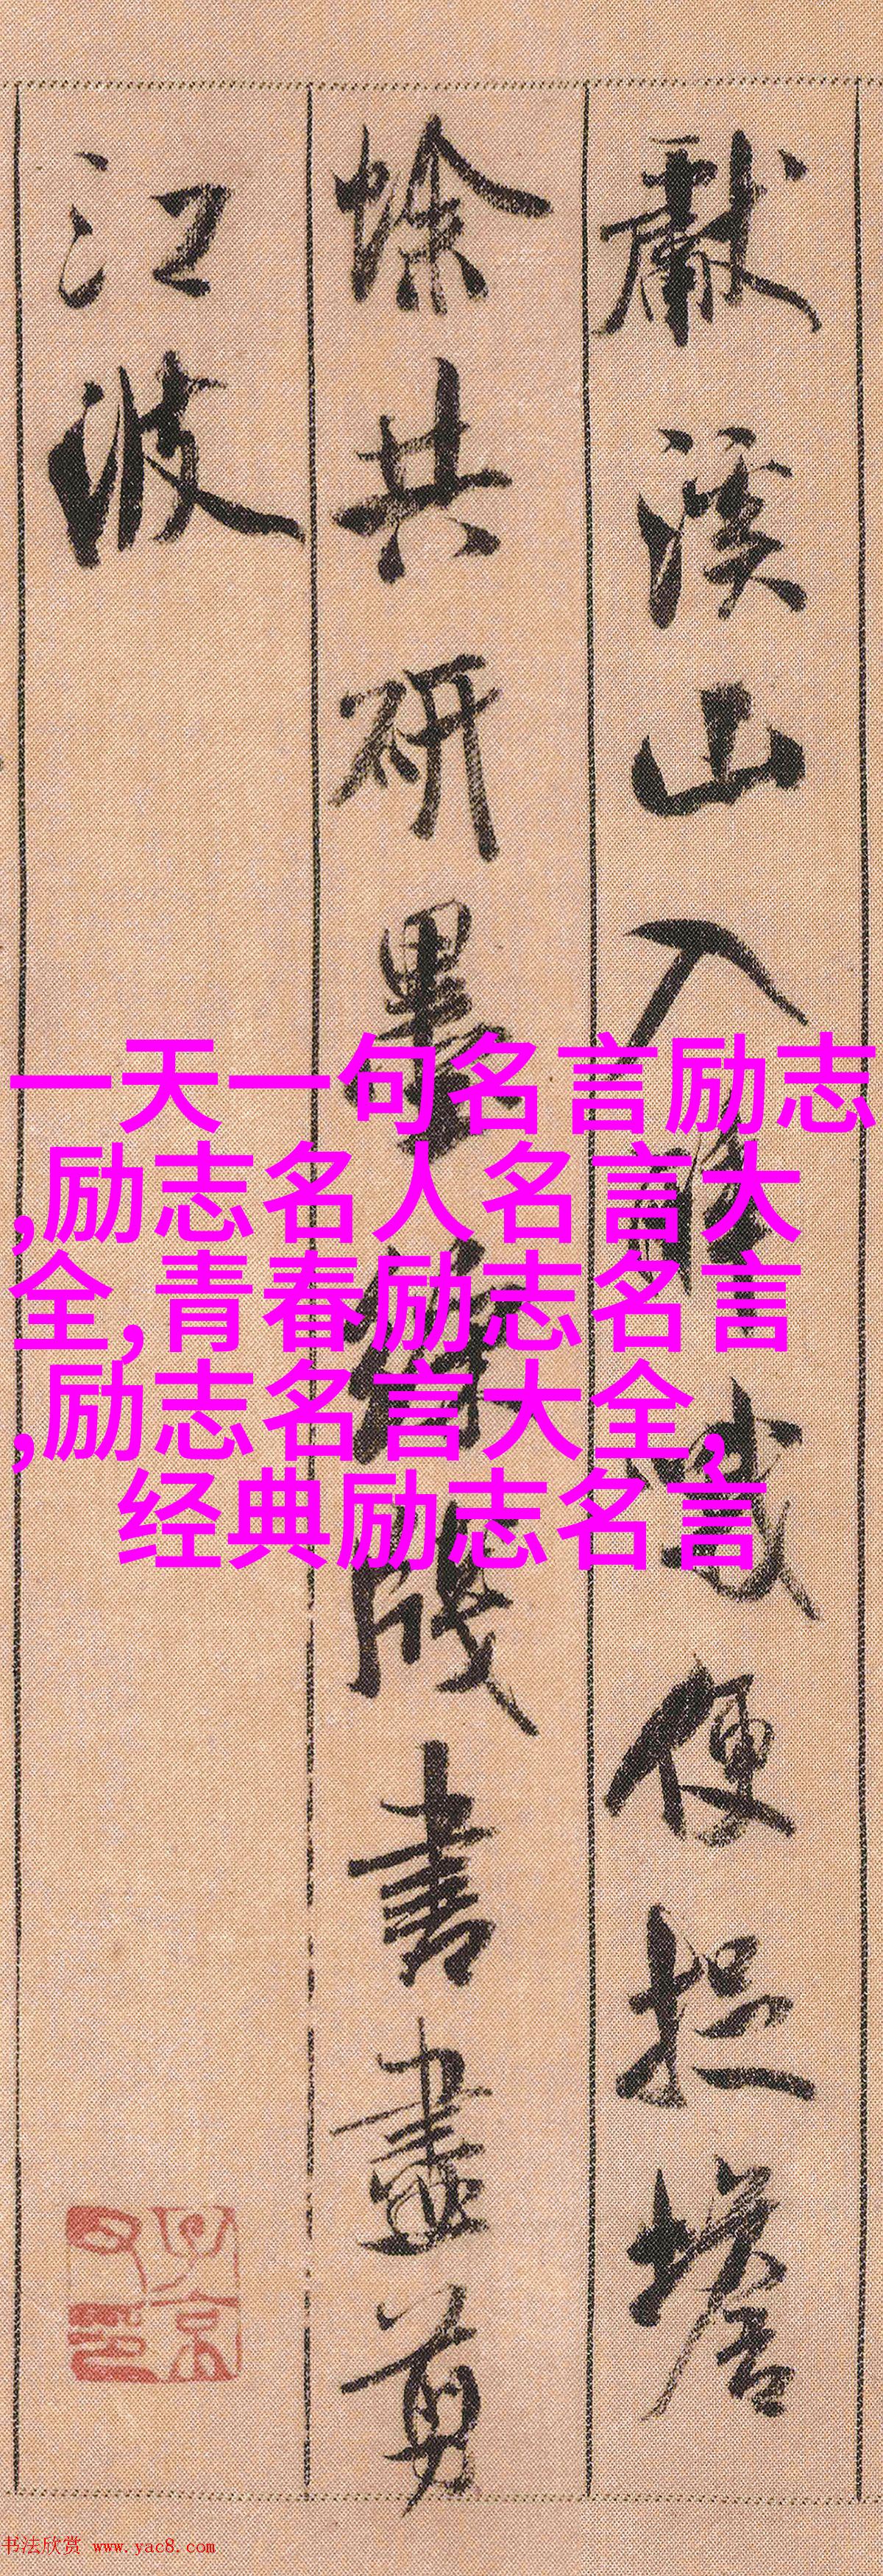 獻溪山入
便捉
蜍共研墨
牋書畫剪
江波
一天一句名言励志
,励志名人名言大
全,青春励志名言
,励志名言大全,
经典励志名言
书法欣赏 www.yac8.com